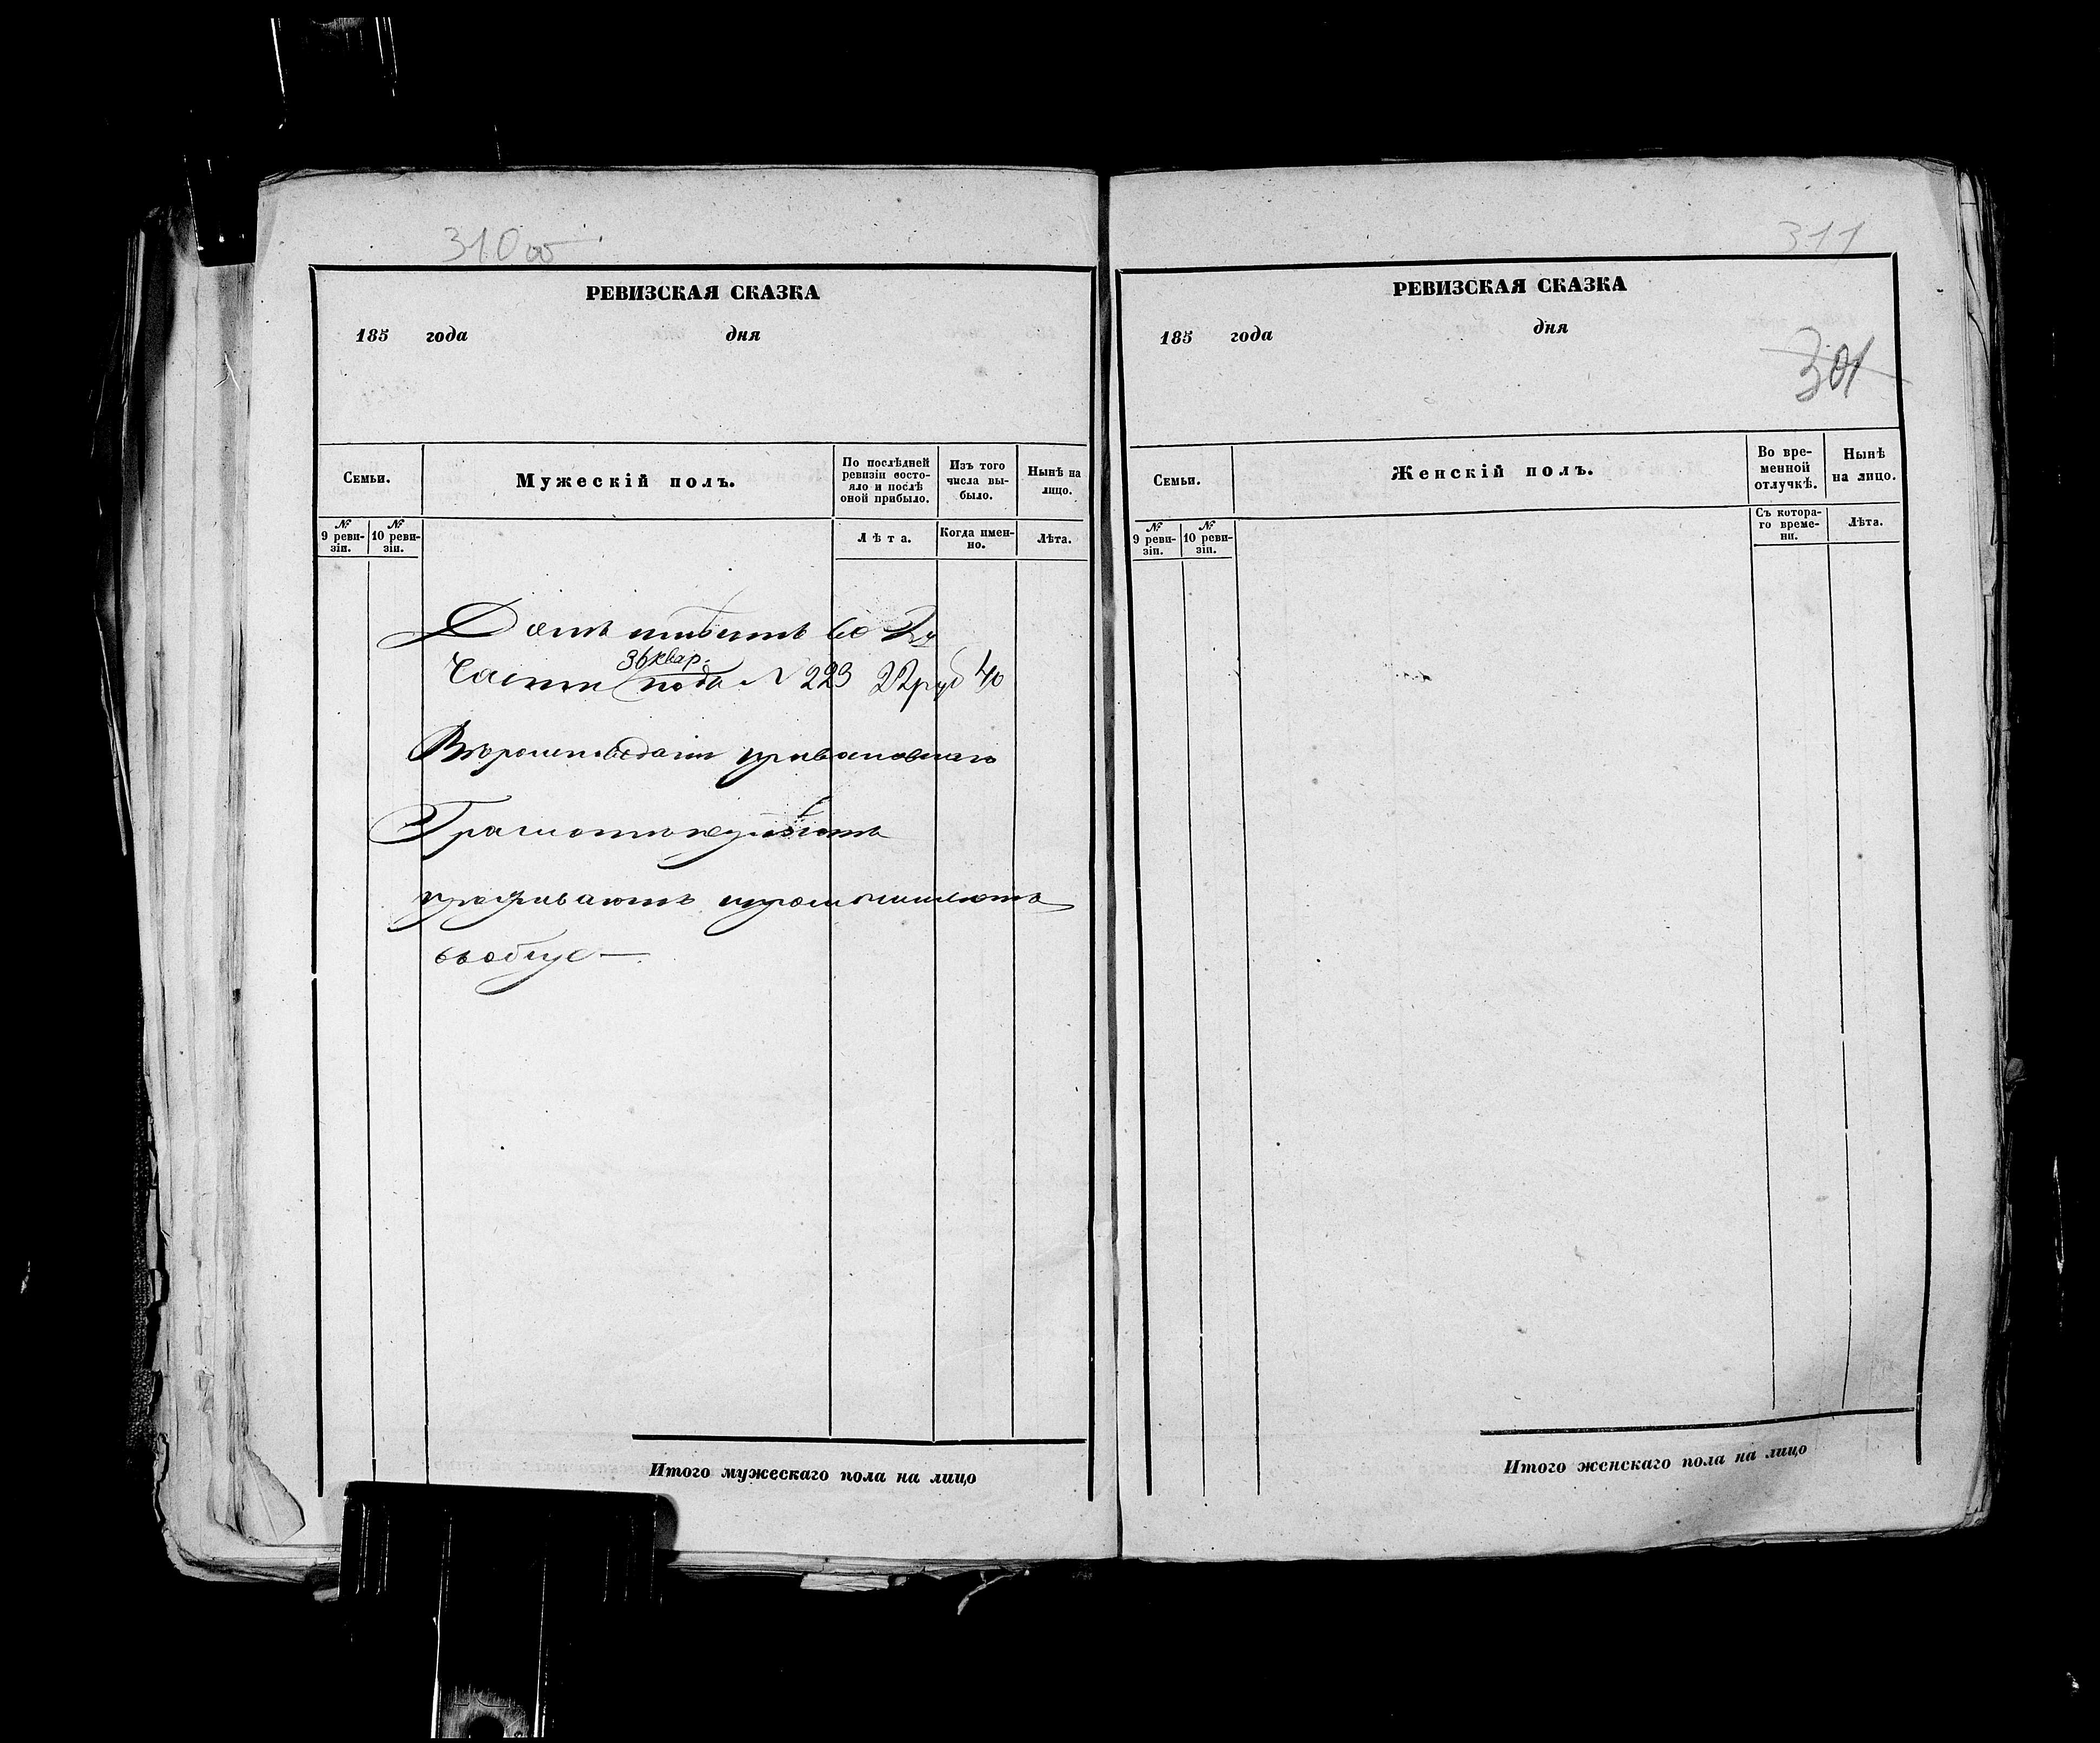 310 об
РЕВИЗСКАЯ СКАЗКА
185 года дня
Семьи.
Мужескій полъ.
По послѣдней ревизіи состо-
яло и послѣ оной прибыло.
Изъ того числа вы-
было.
Нынѣ на лицо.
№ 9 реви-
зіи.
№ 10 реви-
зіи.
Лѣта.
Когда имен-
но.
Лѣта.
Домъ имѣютъ во 2й
Части 3 квар. подъ N 223 22 руб 40
Вѣроисповѣданія православнаго
Грамотѣ неумѣютъ
проживаютъ и промышляютъ
вообще
Итого мужескаго пола на лицо
311
РЕВИЗСКАЯ СКАЗКА
185 года дня
301
Семьи.
Женскій полъ.
Во вре-
менной
отлучкѣ.
Нынѣ
на лицо.
№ 9 реви-
зіи.
№ 10 реви-
зіи.
Съ котора-
го време-
ни.
Лѣта.
Итого женскаго пола на лицо